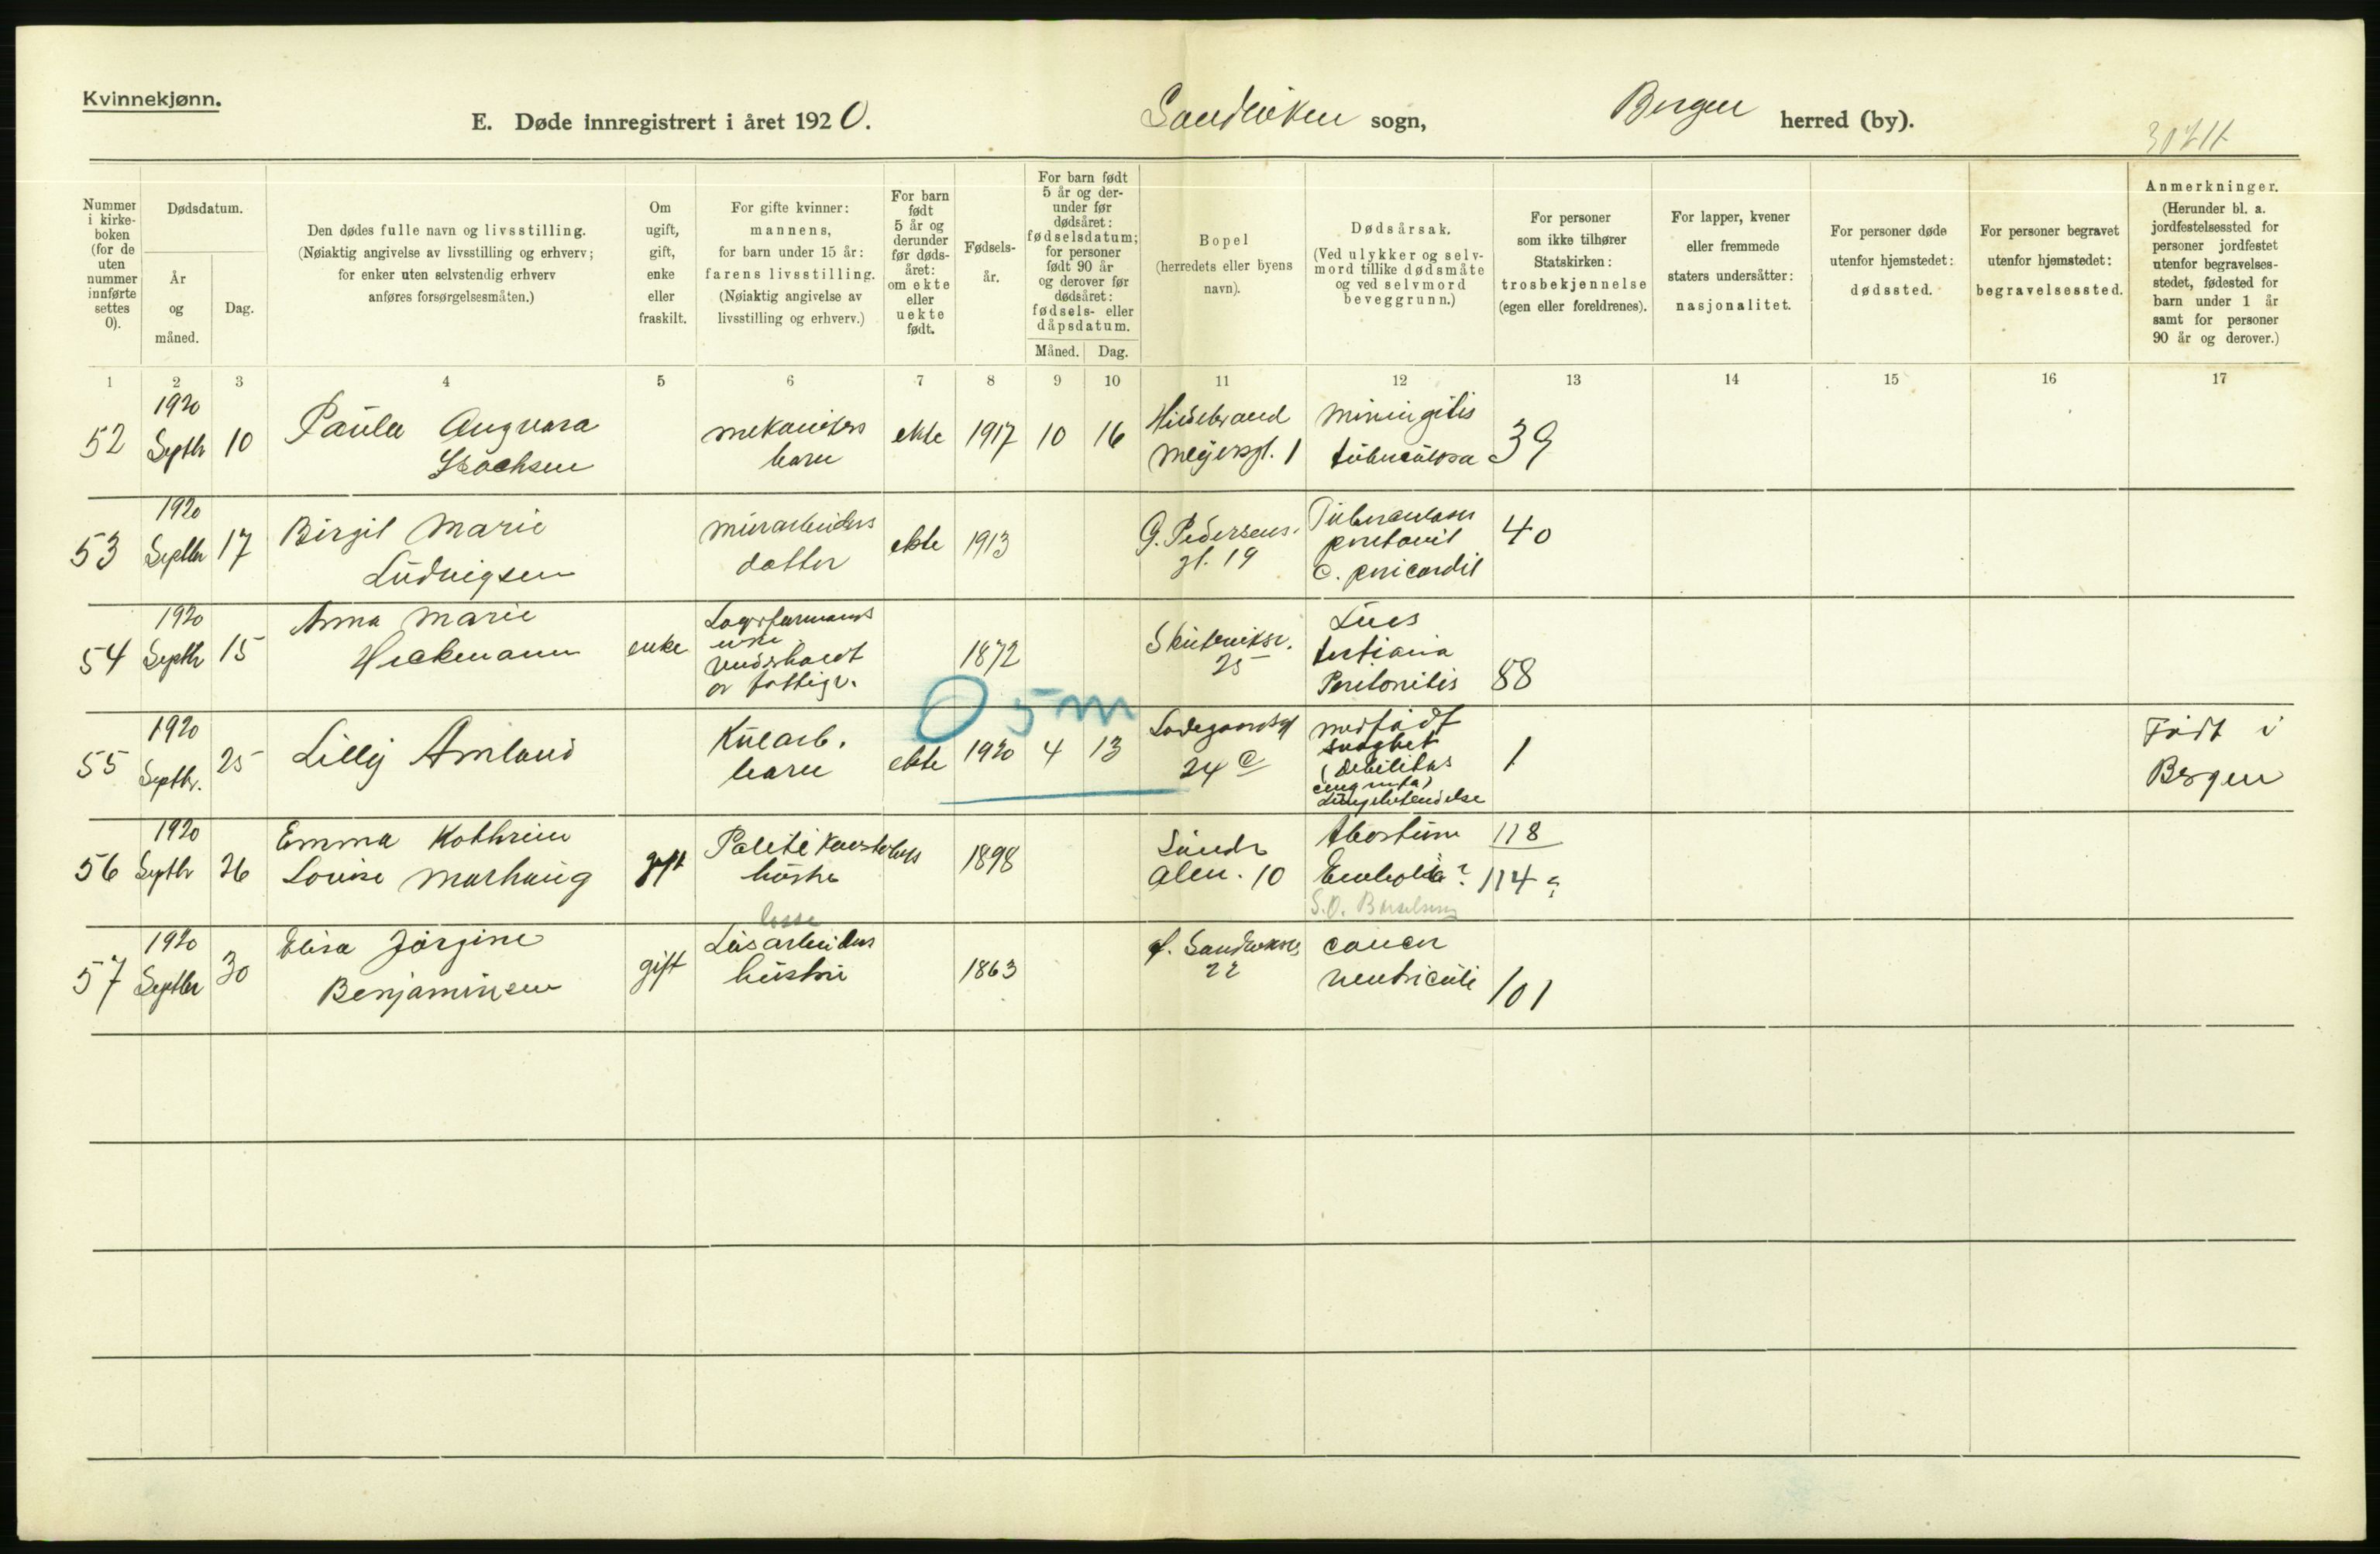 Kvinnekjønn.
E. Døde innregistrert i året 1920. Sandviken sogn, Bergen herred (by).
Nummer i kirkeboken (for de uten nummer innførte settes 0).
Dødsdatum.
År og måned.
Dag.
Den dødes fulle navn og livsstilling.
(Nøiaktig angivelse av livsstilling og erhverv;
for enker uten selvstendig erhverv
anføres forsørgelsesmåten.)
Om
ugift,
gift,
enke
eller
fraskilt.
For gifte kvinner:
mannens,
for barn under 15 år:
farens livsstilling.
(Nøiaktig angivelse av
livsstilling og erhverv.)
For barn
født
5 år og
derunder
før døds-
året:
om ekte
eller
uekte
født.
Fødsels-
år.
For barn født
5 år og der-
under før
dødsåret:
fødselsdatum;
for personer
født 90 år
og derover før
dødsåret:
fødsels- eller
dåpsdatum.
Måned. Dag.
Bopel
(herredets eller byens
navn).
Dødsårsak.
(Ved ulykker og selv-
mord tillike dødsmåte
og ved selvmord
beveggrunn.)
For personer
som ikke tilhører
Statskirken:
trosbekjennelse
(egen eller foreldrenes).
For lapper, kvener
eller fremmede
staters undersåtter:
nasjonalitet.
For personer døde
utenfor hjemstedet:
dødssted.
For personer begravet
utenfor hjemstedet:
begravelsessted.
Anmerkninger.
(Herunder bl. a.
jordfestelsessted for
personer jordfestet
utenfor begravelses-
stedet, fødested for
barn under 1 år
samt for personer
90 år og derover.)
1 2 3 4 5 6 7 8 9 10 11 12 13 14 15 16 17
52
1920
Septbr
10
Paula Angvara
mekanikers
barn
ekte
1917
10
16
Hildebrand
Meyersgt. 1
Miningitis
tuberculosa
39
53
1920
Septbr
17
Birgit Marie
Ludvigsen
murarbeiders
datter
ekte
1913
G. Pedersens
gt. 19
c. pericardit
40
54
1920
Septbr
15
Anna Marie
Heckmann
enke
enke
1872
25
Lues
tertiaria
Peritonitis
88
O 5 m
55
1920
Septbr.
25
Lilly Amland
Kularb.
barn
ekte
1920
4
13
Ladegaardsgt
24 c
medfødt
svaghet
(debilitas
congenita)
Lungebetendelse
1
Født i
Bergen
56
1920
Septbr
26
Emma Kathrine
Louise Marhaug
gift
Politi konstabels
hustru
1898
Søndre
Alen. 10
Abortum
118
Emboli?
114?
57
1920
Septbr
30
Elisa Jørgine
Benjaminsen
gift
losse
Løsarbeiders
hustru
1863
22
cancer
ventriculi
101